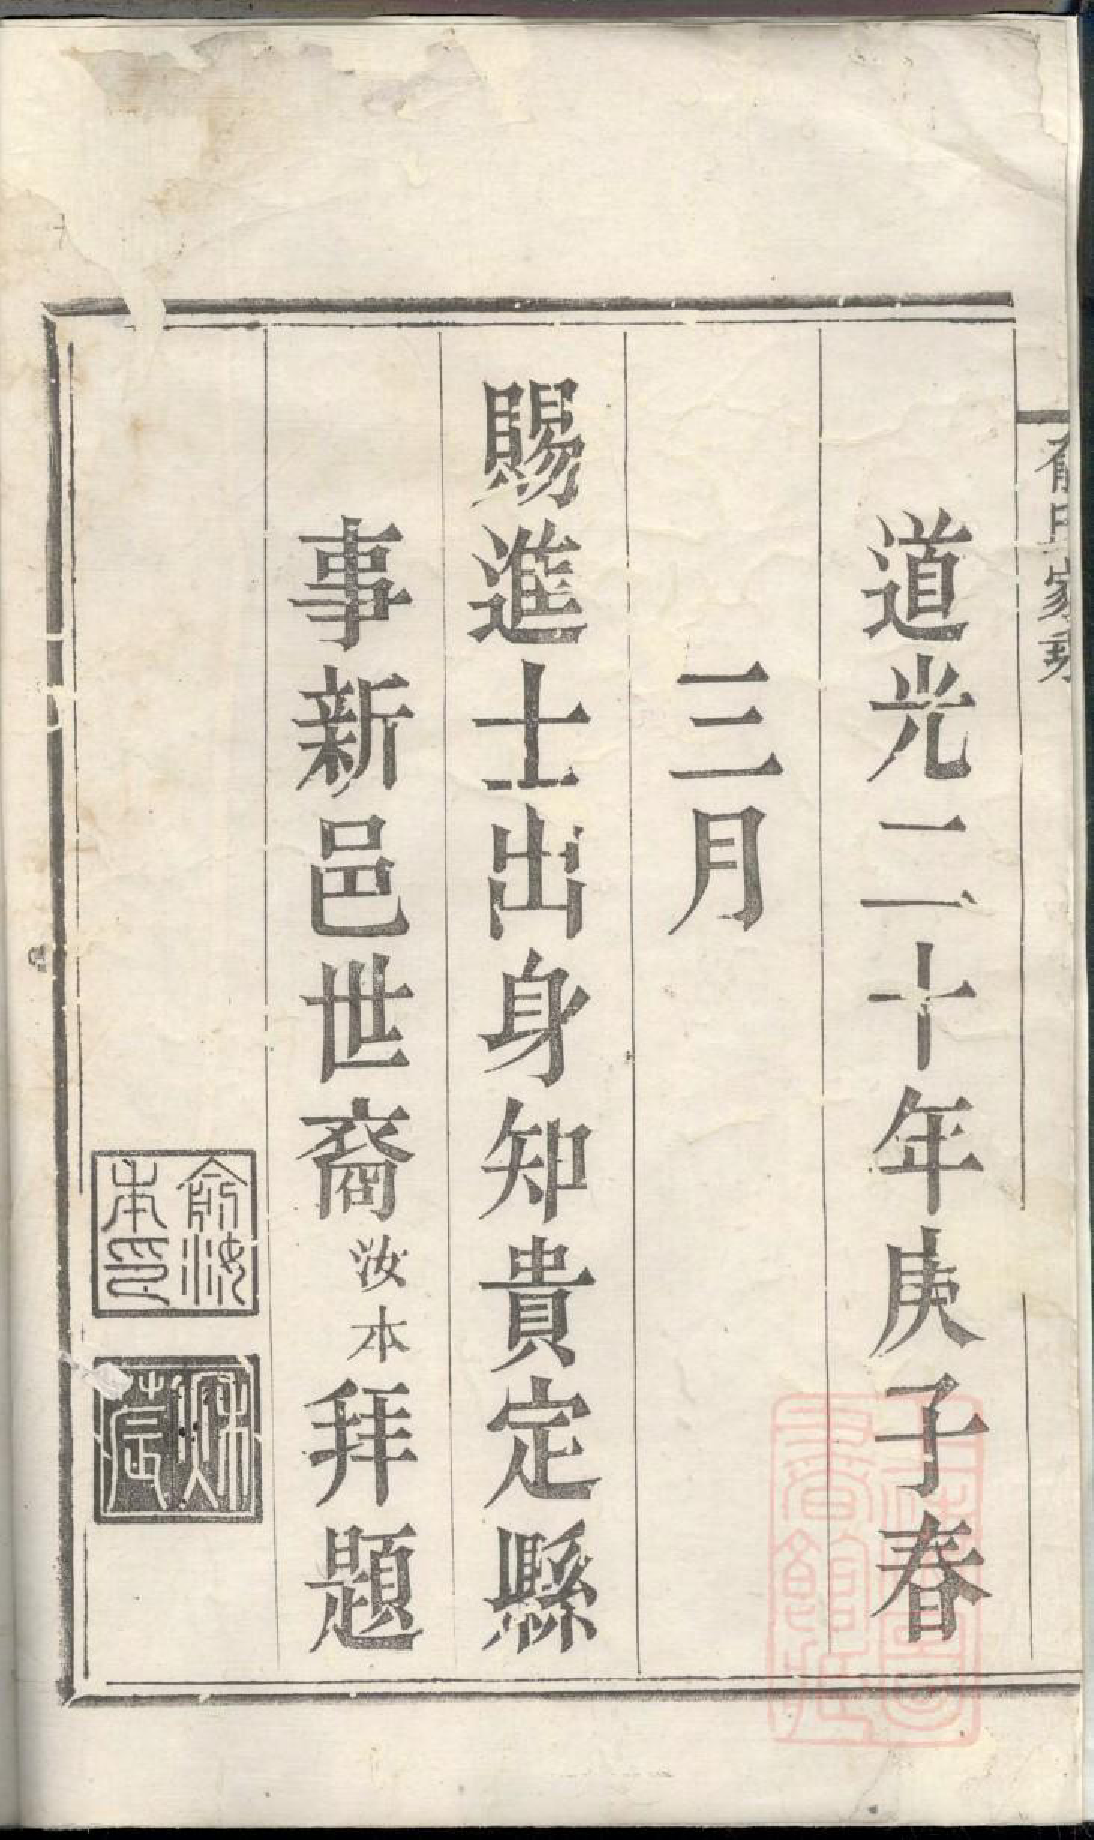 俞氏家乘
道光二十年庚子春
三月
賜進士出身知貴定縣
事新邑世裔汝本拜題
俞汝本印